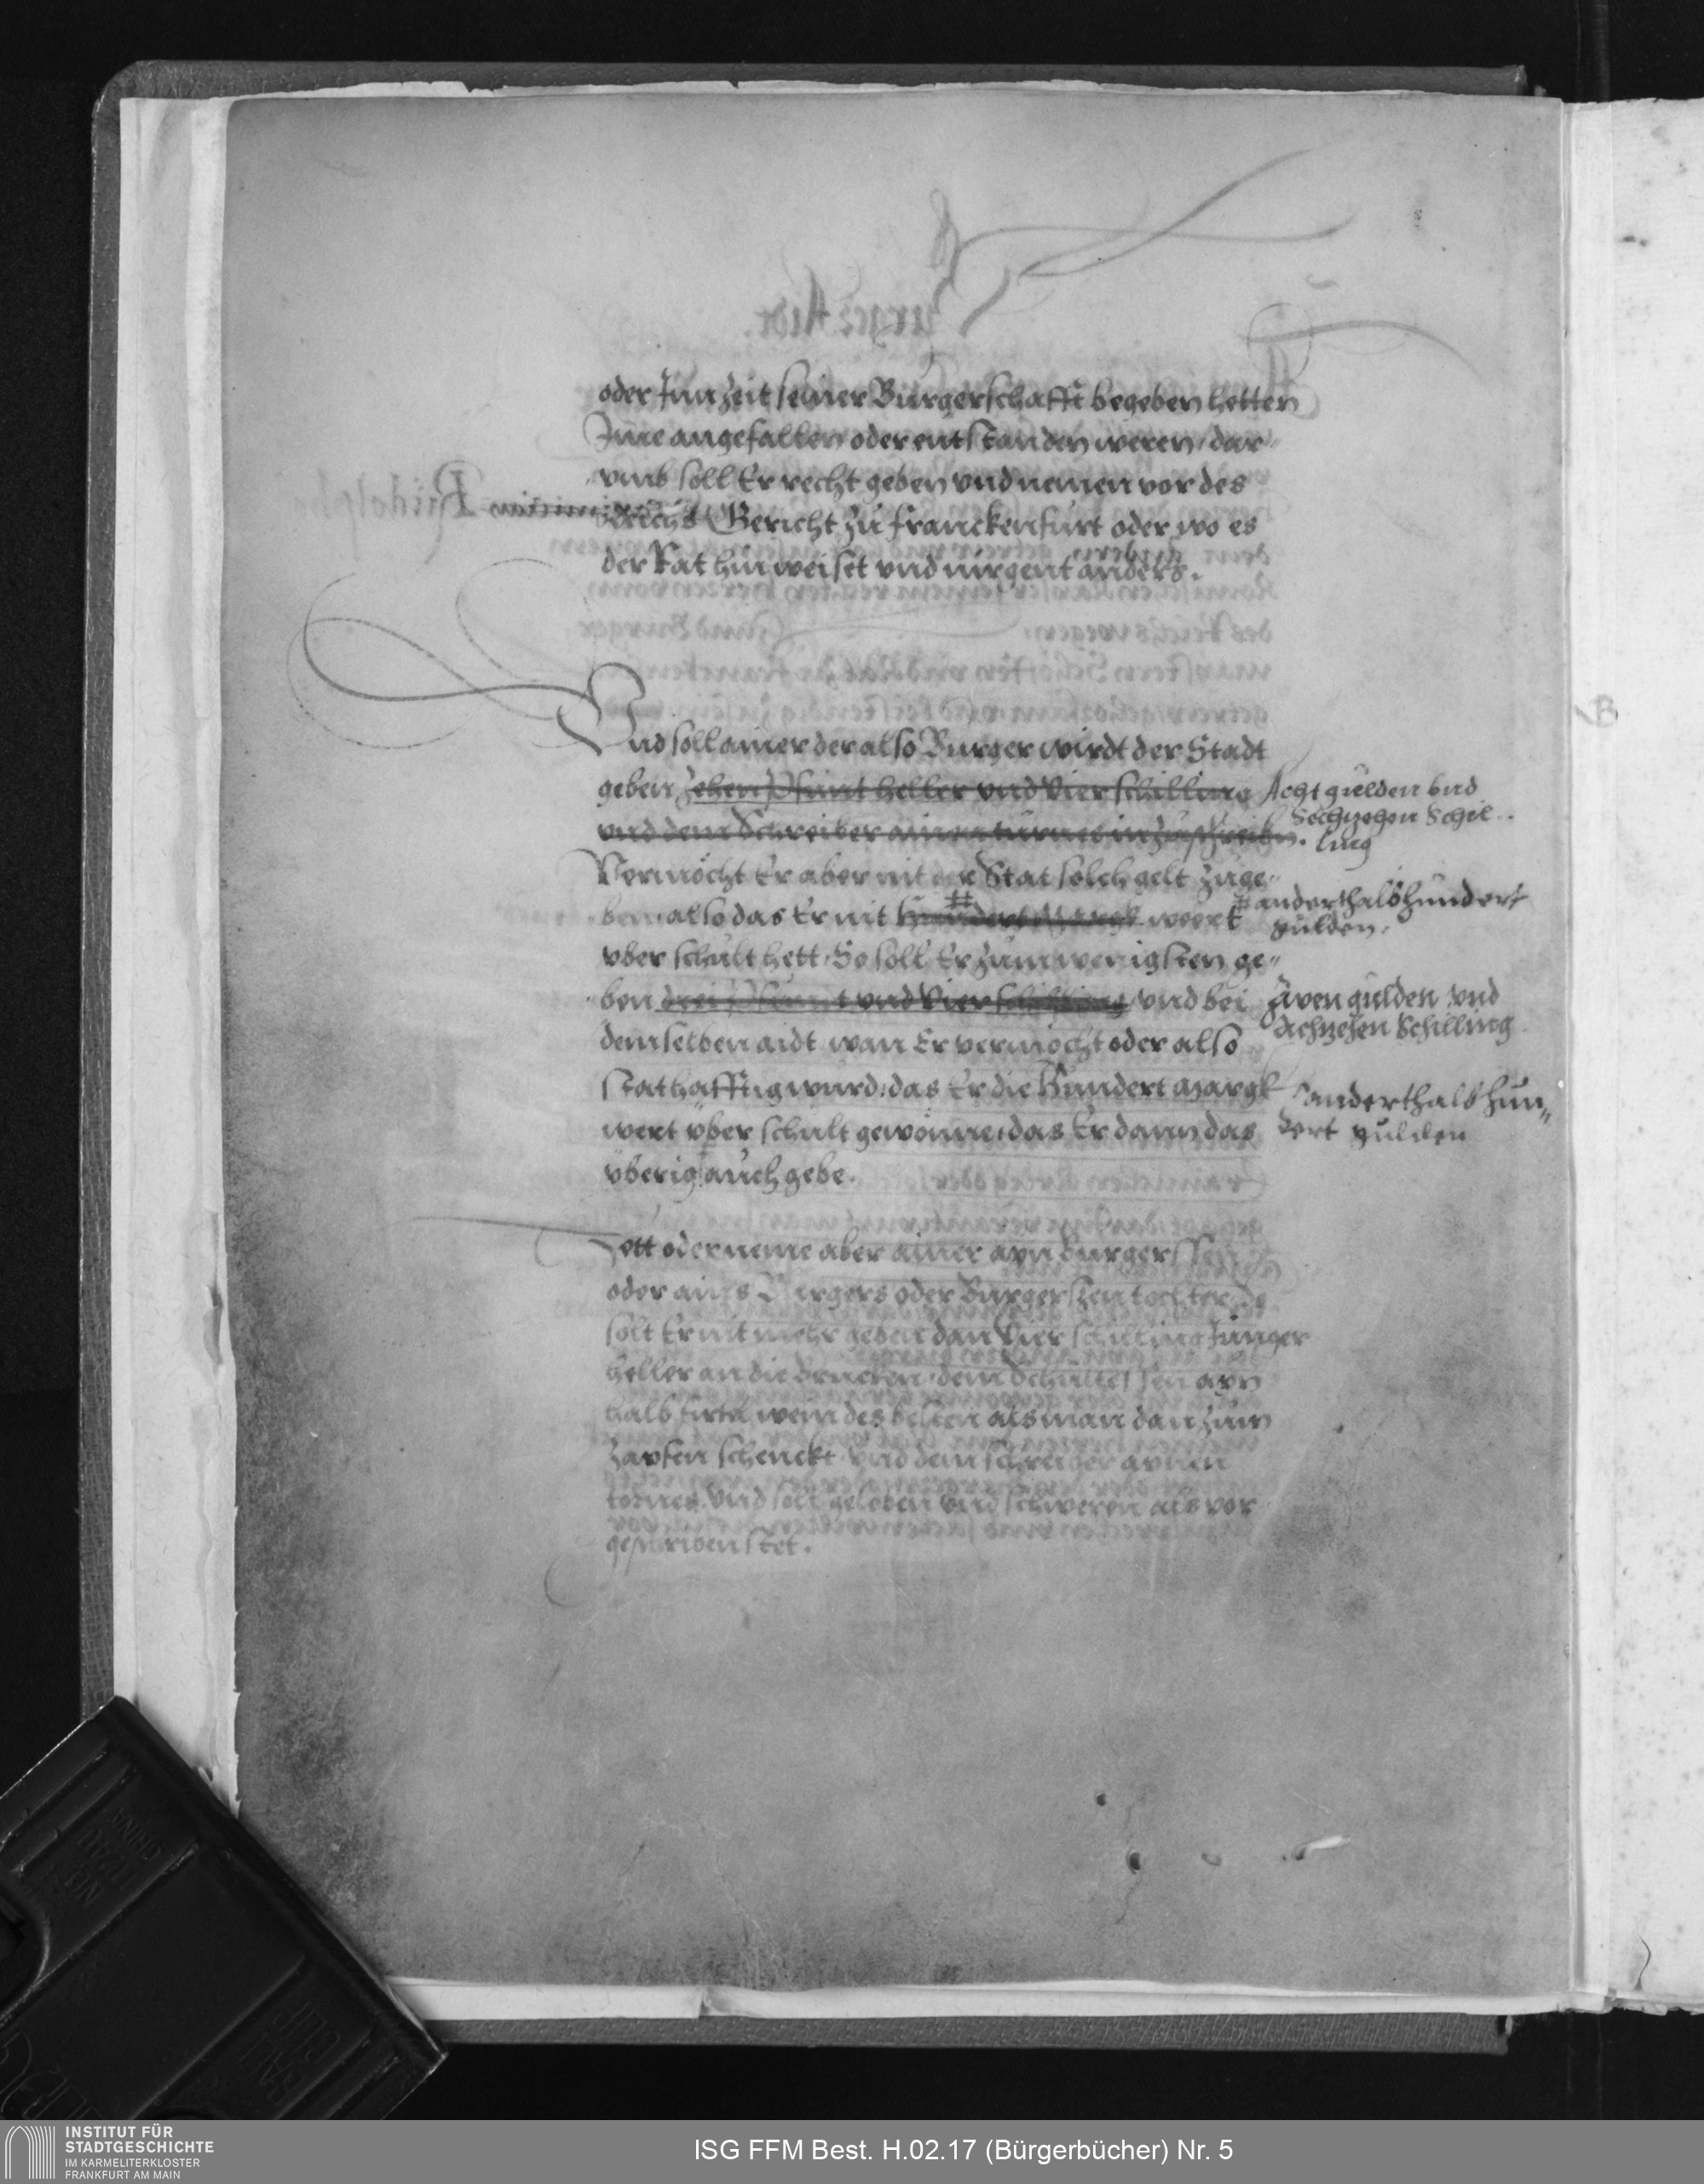 oder Inn zeit seiner Burgerschafft begeben hetten
Ime angefallen oder entstanden weren, dar-
vmb soll Er recht geben vnd nemen vor des
Reichs Gericht zu franckenfurt oder wo es
der Rat hin weiset vnd nirgent anders.
Vnd soll ainer der also Burger wirdt der Stadt
geben zehen Pfunt heller vnd Vier schilling Acht gulden vnd
Sechzehen Schil-
vnd dem Schreiber ainen turnes inzuschreiben. ling
Vermöcht Er aber nit der Stat solch gelt zu ge-
ben, also das Er nit # hundert Margk weert # anderthalbhundert
gulden.
vber schult hett, So soll Er zum wenigsten ge-
ben drei Pfunt vnd Vier schilling vnd bei Zwen gulden vnd
Achzehen Schilling
demselben aidt wan Er vermöcht oder also
stathafftig wurd, das Er die Hundert Margk anderthalb hun-
dert gulden
wert vber schult gewonne, das Er dann das
vberig auch gebe.
Hett oder neme aber ainer ayn Burgerssen
oder ains Burgers oder Burgerssen tochter, So
solt Er nit mehr geben dan Vier schilling Junger
heller an die Brucken, dem Schultessen ayn
halb firtel wein des besten als man dan zum
Zapfen schenckt vnd dem schreiber aynen
tornes vnd solt geloben vnd schweren als vor
geschriben stet.
INSTITUT FÜR
STADTGESCHICHTE
IM KARMELITERKLOSTER
FRANKFURT AM MAIN
ISG FFM Best. H.02.17 (Bürgerbücher) Nr. 5